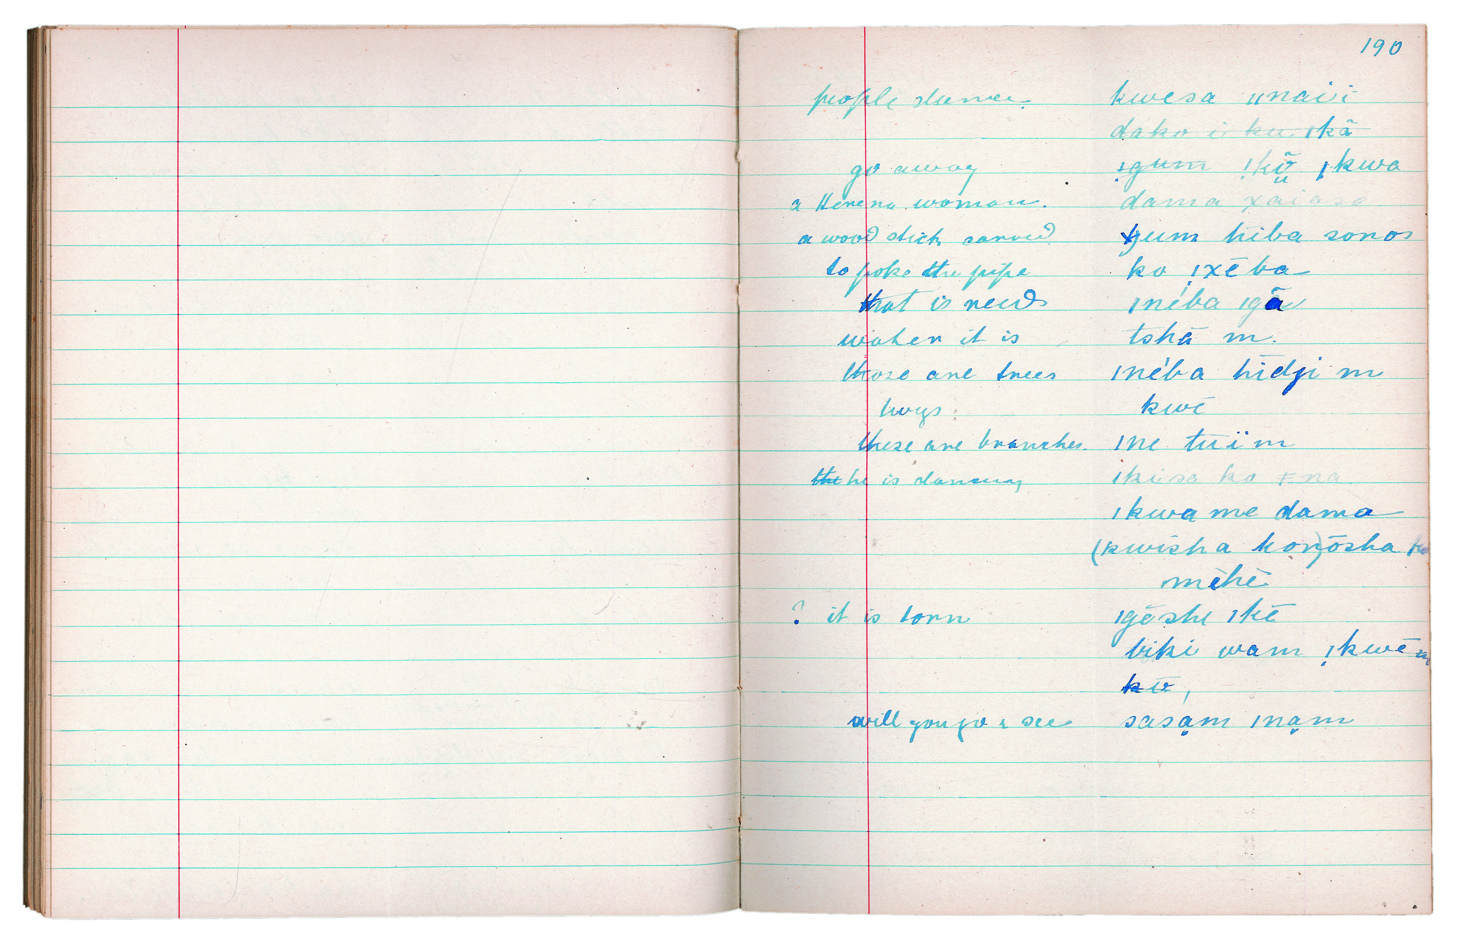 190
people dance. kwesa ıınaiʼi
dako i ku ıkã
go away ǃgum ǃkũ ǃkwa
a Herero woman. dama xaiasa
a wood stick carved gum hiba sonos
to poke the pipe ko ǃxēba
that is reeds ıneba ıgã
wather it is tshã m.
those are trees ıneba hīdji m
legs: kwē
these are branches. ıne tüïm
he is dancing ıkisa ko ǂna
ıkwa me dama
(kwisha kon)ōsha
mēhē
? it is torn ıgēshe ıkē
biki wam ǃkwē
kū,
will you go & see sasạm ınạm